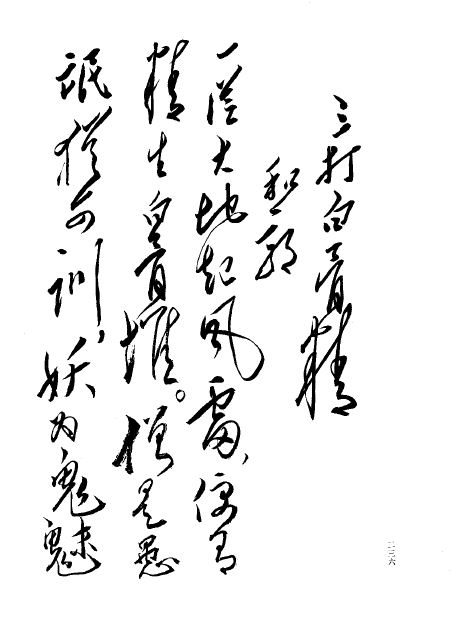 三打白骨精
和郭
一從大地起风雷,便有
精生白骨堆。僧是愚
氓猶可训,妖为鬼魅
二三六